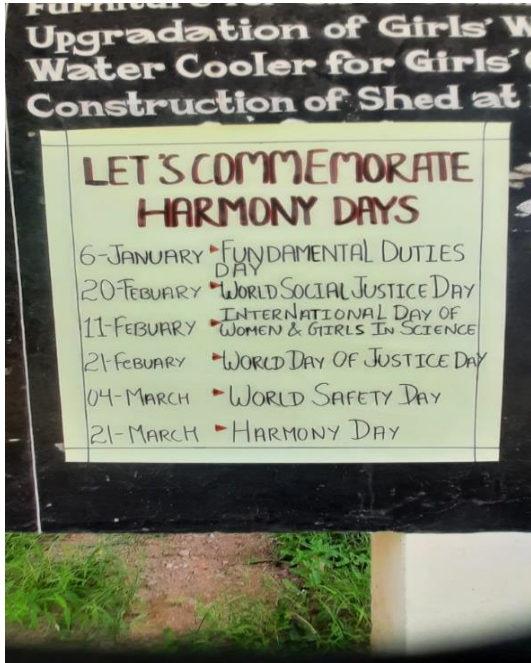 Upgradation of Girls'
Water Cooler for Girls'
Construction of Shed at
LET'S COMMEMORATE
HARMONY DAYS
6-JANUARY ► FUNDAMENTAL DUTIES
DAY
20-FEBUARY ► WORLD SOCIAL JUSTICE DAY
11-FEBUARY ► INTERNATIONAL DAY OF
WOMEN & GIRLS IN SCIENCE
21-FEBUARY ► WORLD DAY OF JUSTICE DAY
04-MARCH ► WORLD SAFETY DAY
21-MARCH ► HARMONY DAY